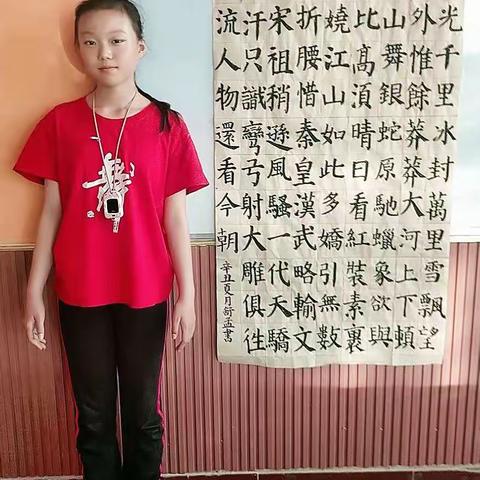 光千里冰封萬里雪飄望
外惟餘莽莽大河上下頓
山舞銀蛇原馳蠟象欲與
比髙湏晴日看紅裝素裹
嬈江山如此多嬌引無數
折腰惜秦皇漢武略輸文
宋祖稍遜風騷一代天驕
汗只識彎弓射大雕俱往
流人物還看今朝
辛丑夏月舒孟書